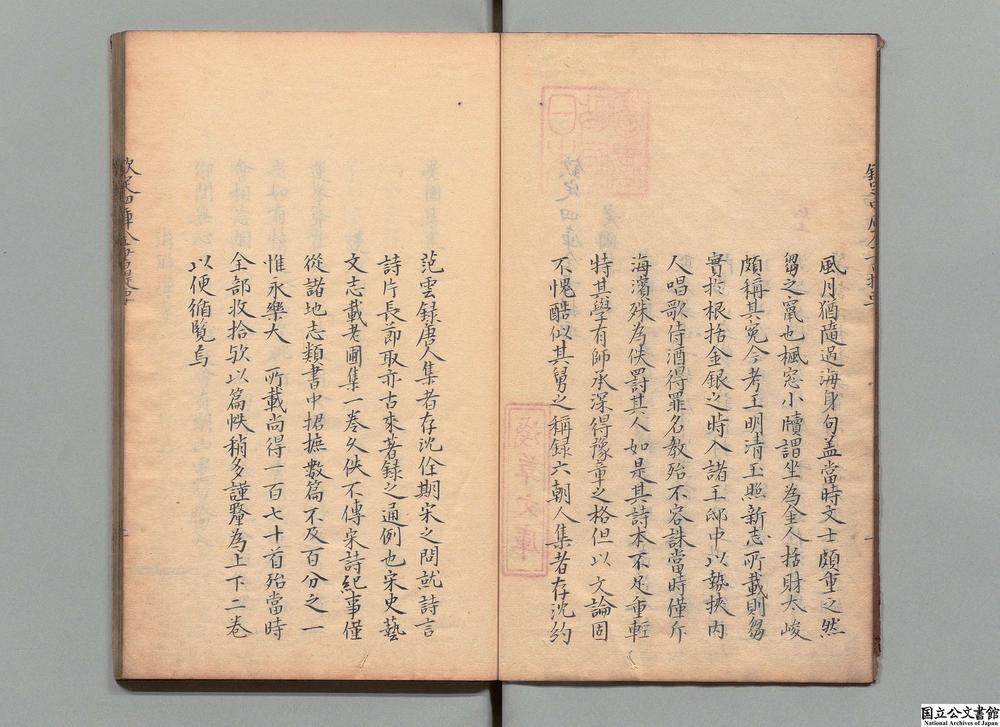 風月猶隨過海身句盖當時文士頗重之然
芻之竄也楓窓小牘謂坐為金人括財太峻
頗稱其冤今考王明清玉照新志所載則芻
實於根括金銀之時入諸王邸中以勢挾內
人唱歌侍酒得罪名教殆不容誅當時僅斥
海濱殊為佚罰其人如是其詩本不足重輕
特其學有師承深得豫章之格但以文論固
不愧酷似其舅之稱録六朝人集者存沈約
范雲録唐人集者存沈佺期宋之問就詩言
詩片長節取亦古來著録之通例也宋史藝
文志載老圃集一卷久佚不傳宋詩紀事僅
從諸地志類書中捃摭數篇不及百分之一
惟永樂大 所載尚得一百七十首殆當時
全部收拾欤以篇帙稍多謹釐為上下二卷
以便循覧焉
欽定四庫
淺草文庫
国立公文書館
National Archives of Japan